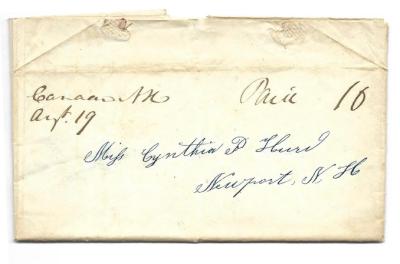 Canaan N H Paid 10
Augt. 19
Miss Cynthia P Hurd
Newport, N H